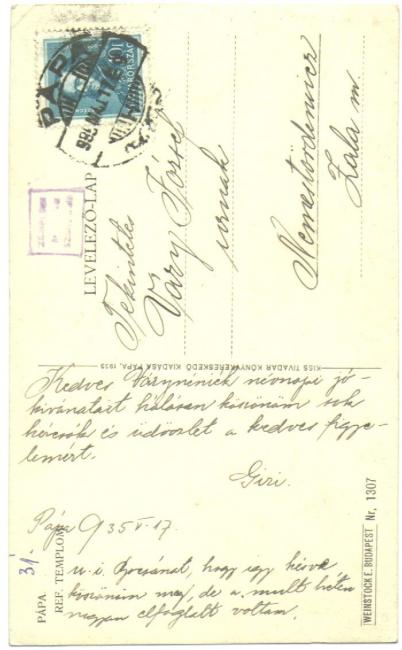 LEVELEZŐ-LAP
Tekintetes
Váry József
úrnak
Nemestördemicz
Zala m
KISS TIVADAR KÖNYVKERESKEDŐ KIADÁSA PÁPA, 1935
Kedves Várynéniék névnapi jó-
kívánatait hálásan köszönöm sok
kézcsók és üdvözlet a kedves figye-
lemért.
Giri.
Pápa 935 V. 17.
u.i. Bocsánat, hogy így késve
köszönöm meg, de a mult héten
nagyon elfoglalt voltam.
PÁPA
REF. TEMPLOM
31
WEINSTOCK E. BUDAPEST Nr. 1307
PÁPA